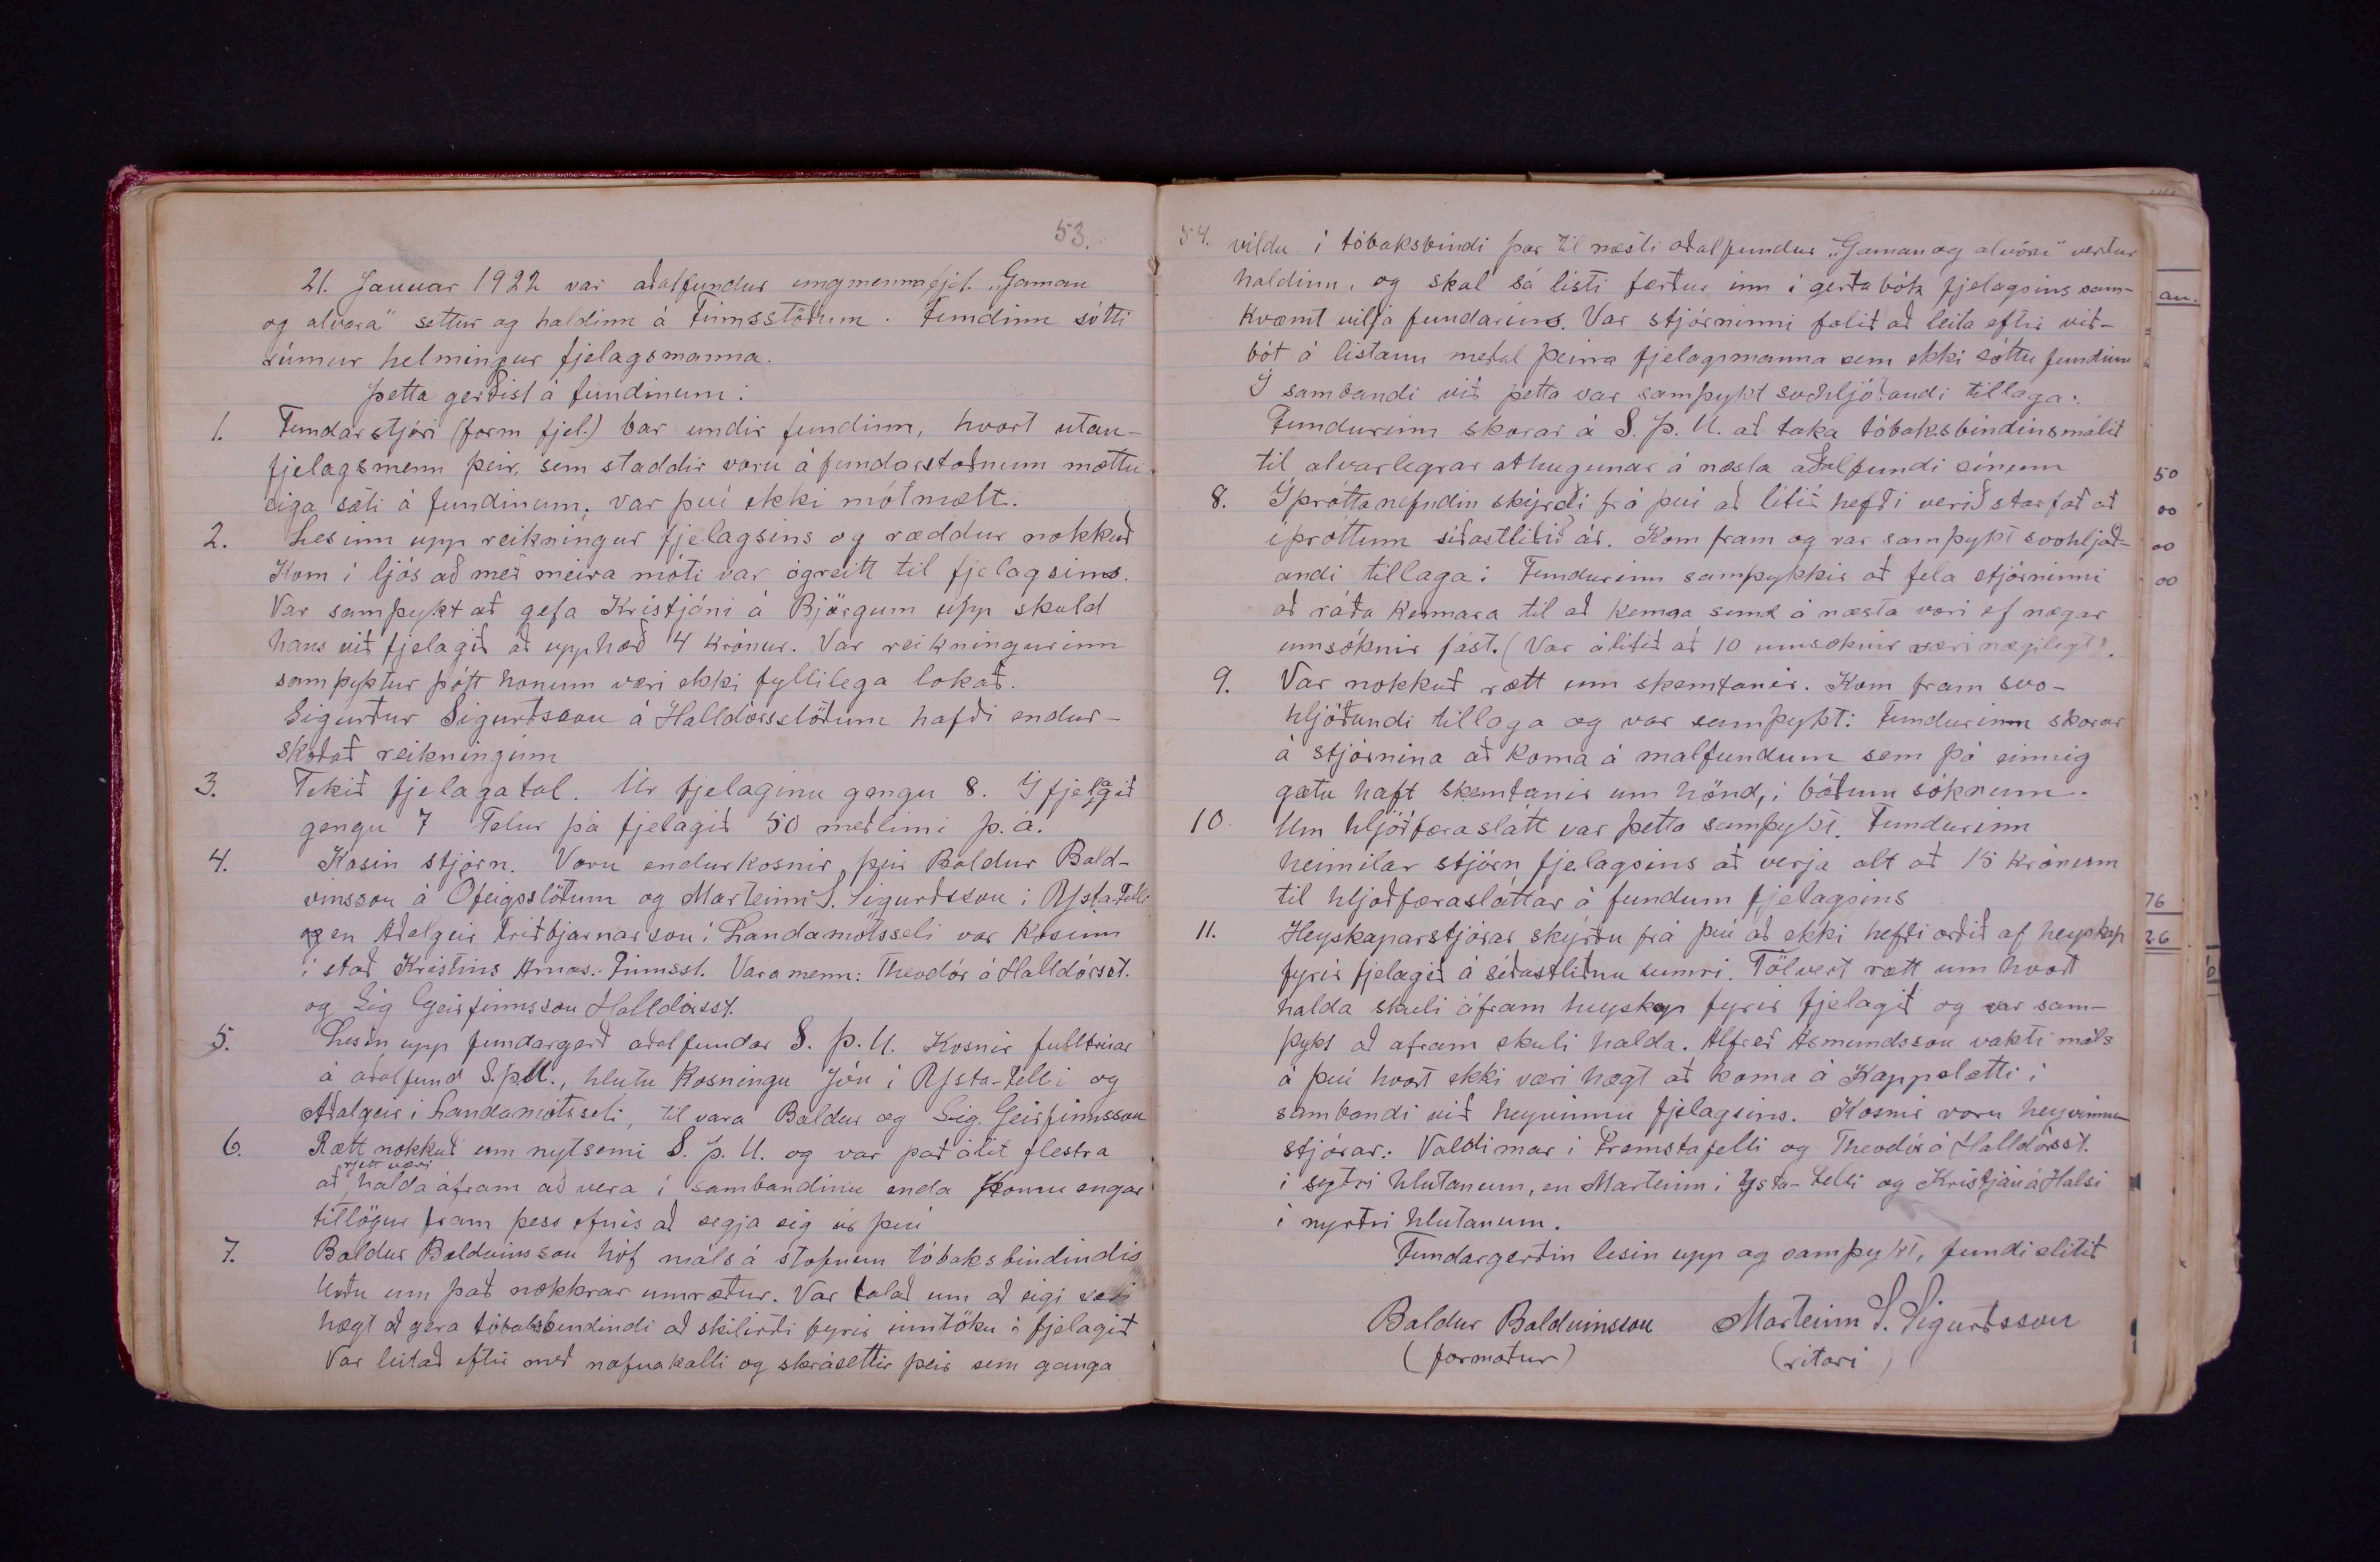 53.
21. Januar 1922 var aðalfundur ungmennafjel. „Gaman
og alvara" settur og haldinn á Finnsstöðum. Fundinn sótti
rúmur helmingur fjelagsmanna.
Þetta gerðist á fundinum:
1. Fundarstjóri (form fjel.) bar undir fundinn, hvort utan-
fjelagsmenn þeir, sem staddir voru á fundarstaðnum mættu
eiga sæti á fundinum, var því ekki mótmælt.
2. Lesinn upp reikningur fjelagsins og ræddur nokkuð
Kom í ljós að með meira móti var ógreitt til fjelagsins.
Var samþykt að gefa Kristjáni á Björgum upp skuld
hans við fjelagið að upphæð 4 krónur. Var reikningurinn
samþyktur þótt honum væri ekki fyllilega lokað.
Sigurður Sigurðsson á Halldórsstöðum hafði endur-
skoðað reikninginn
3. Tekið fjelagatal. Úr fjelaginu gengu 8. Í fjelagið
gengu 7 Telur þá fjelagið 50 meðlimi þ. á.
4. Kosin stjórn. Voru endurkosnir þeir Baldur Bald-
vinsson á Ófeigsstöðum og Marteinn S. Sigurðsson í Ysta-Felli
en Aðalgeir Friðbjarnarson í Landamótsseli var kosinn
í stað Kristins Arnas. Finnsst. Varamenn: Theodór á Halldórsst.
og Sig Geirfinnsson Halldórsst.
5. Lesin upp fundargerð aðalfundar S. Þ. U. Kosnir fulltrúar
á aðalfund S.Þ.U., hlutu kosningu Jón í Ysta-Felli og
Aðalgeir í Landamótsseli, til vara Baldur og Sig. Geirfinnsson
6. Rætt nokkuð um nytsemi S. Þ. U. og var það álit flestra
að rjett væri halda áfram að vera í sambandinu enda komu engar
tillögur fram þess efnis að segja sig úr því
7. Baldur Baldvinsson hóf máls á stofnun tóbaksbindindis
Urðu um það nokkrar umræður. Var talað um að eigi væri
hægt að gera tóbaksbindindi að skilirði fyrir inntöku í fjelagið
Var leitað eftir með nafnakalli og skrásettir þeir sem ganga
54. vildu í tóbaksbindi þar til næsti aðalfundur „Gaman og alvöru" verður
haldinn, og skal sá listi færður inn í gerðabók fjelagsins sam-
kvæmt vilja fundarins. Var stjórninni falið að leita eftir við-
bót á listann meðal þeirra fjelagsmanna sem ekki sóttu fundinn
Í sambandi við þetta var samþykt svohljóðandi tillaga:
Fundurinn skorar á S. Þ. U. að taka tóbaksbindinsmálið
til alvarlegrar athugunar á næsta aðalfundi sínum
8. Íþróttanefndin skýrði frá því að lítið hefði verið starfað að
íþróttum síðastliðið ár. Kom fram og var samþykt svohljóð-
andi tillaga: Fundurinn samþykkir að fela stjórninni
að ráða kennara til að kenna sund á næsta vori ef nægar
umsóknir fást. (Var álitið að 10 umsóknir væri nægilegt).
9. Var nokkuð rætt um skemtanir. Kom fram svo-
hljóðandi tillaga og var samþykt: Fundurinn skorar
á stjórnina að koma á malfundum sem þá einnig
gætu haft skemtanir um hönd, í báðum sóknum.
10. Um hljóðfæraslátt var þetta samþykt. Fundurinn
heimilar stjórn fjelagsins að verja alt að 15 krónum
til hljóðfærasláttar á fundum fjelagsins
11. Heyskaparstjórar skýrðu frá því að ekki hefði orðið af heyskap
fyrir fjelagið á síðastliðnu sumri. Tölvert rætt um hvort
halda skuli áfram heyskap fyrir fjelagið og var sam-
þykt að afram skuli halda. Alfreð Asmundsson vakti máls
á því hvort ekki væri hægt að koma á Kappslætti í
sambandi við heyvinnu fjelagsins. Kosnir voru heyvinnu-
stjórar: Valdimar í Fremstafelli og Theodór á Halldórsst.
í syðri hlutanum, en Marteinn í Ysta-Felli og Kristján á Halsi
í nyrðri hlutanum.
Fundargerðin lesin upp og samþykt, fundi slitið
Baldur Baldvinsson Marteinn S. Sigurðsson
(formaður) (ritari)
au.
50
00
00
00
76
26